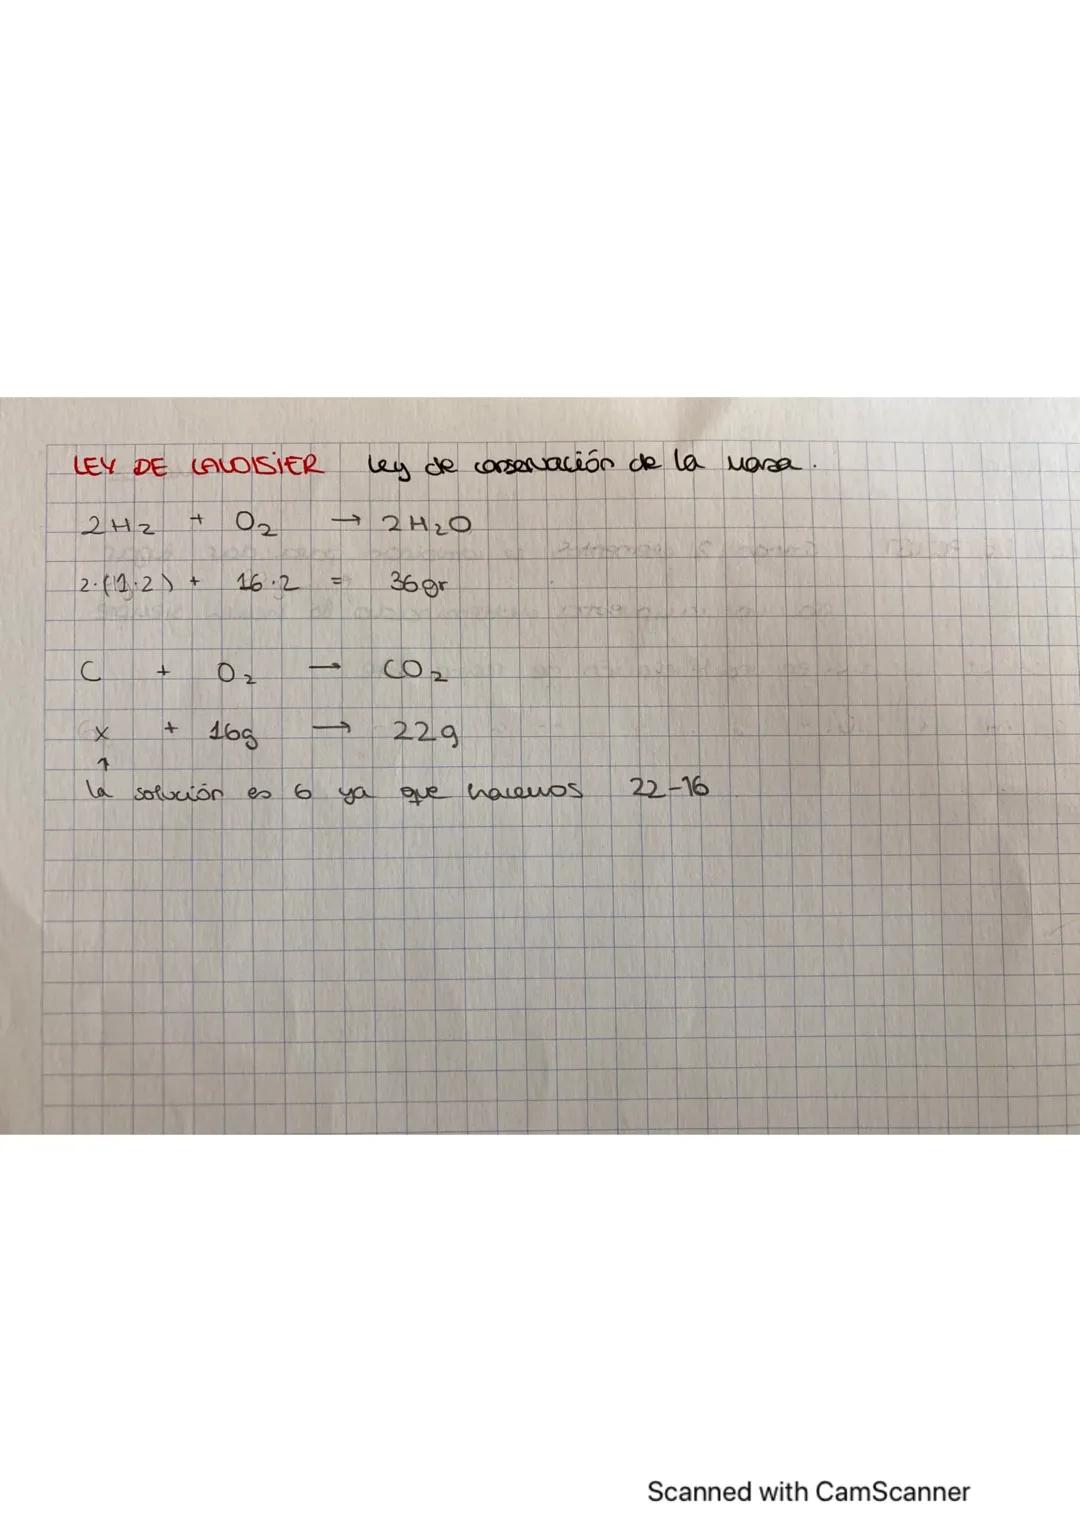 LEY DE LAVOISIER Ley de conservación de la masa.
2H₂ + O₂ → 2H₂O
2·(1·2) + 16·2 = 36gr
C + O₂ → CO₂
x + 16g → 22g
↑
la solución es 6 ya que hacemos 22-16
Scanned with CamScanner